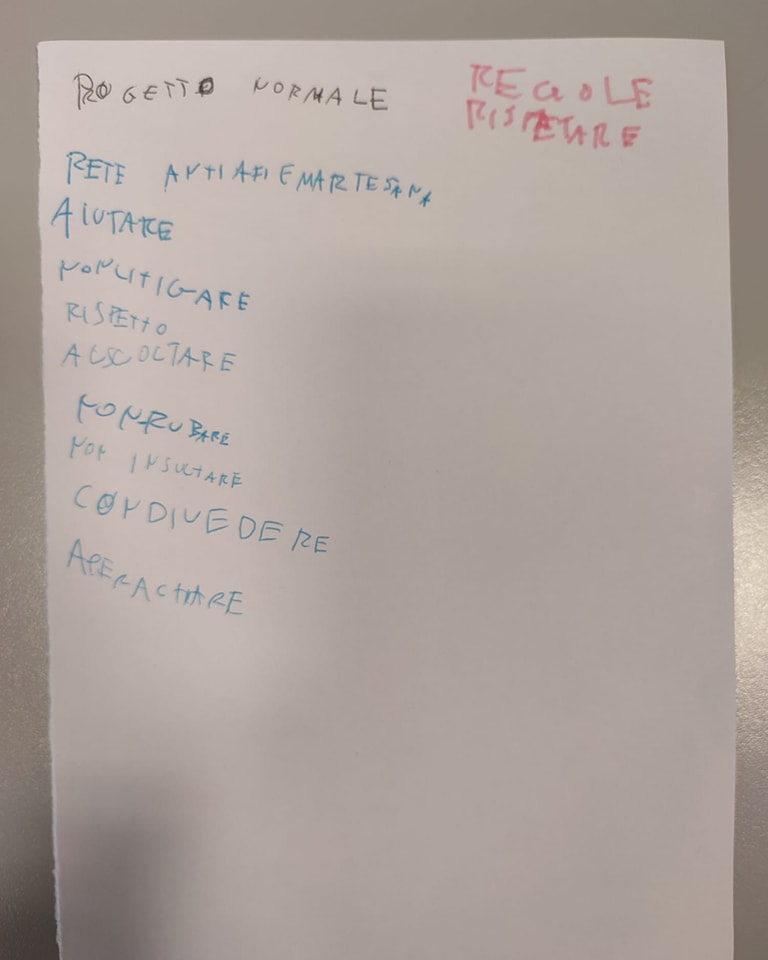 ROGETTO NORMALE
REGOLE
RISPETARE
RETE ANTIAFIEMARTESANA
AIUTARE
NONLITIGARE
RISPETTO
AUSCOLTARE
NONRUBARE
NON INSULTARE
CONDIVEDERE